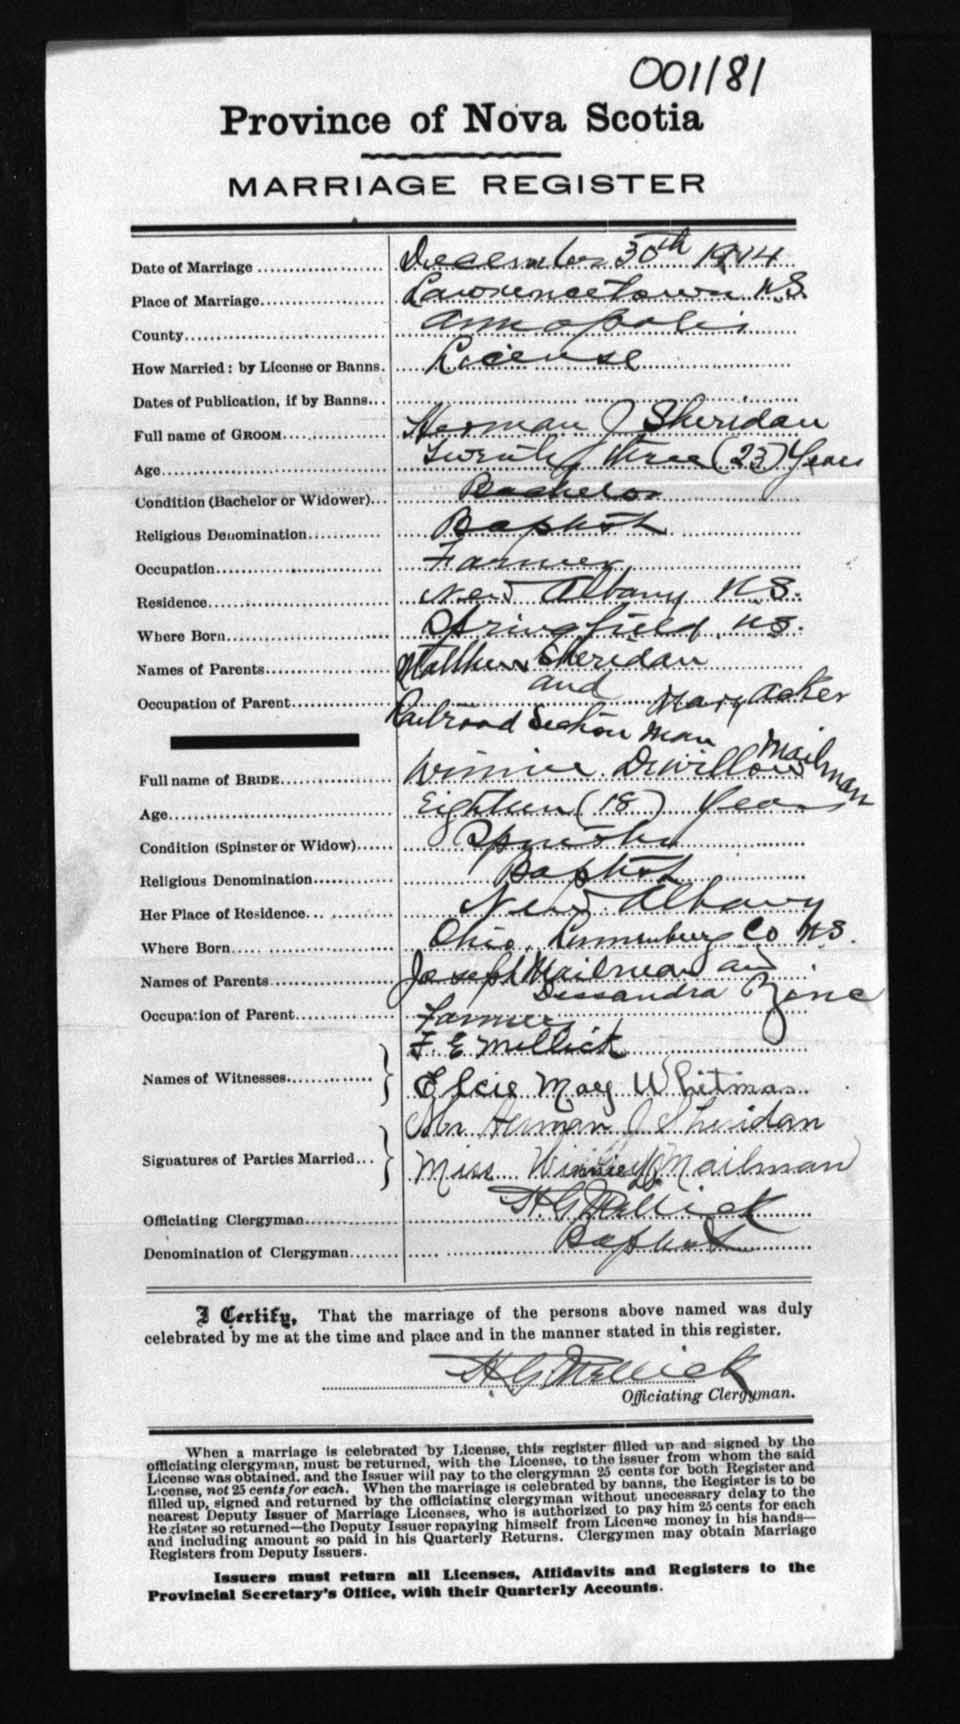 001181
Province of Nova Scotia
MARRIAGE REGISTER
Date of Marriage December 30th 1914
Place of Marriage Lawrencetown N.S.
County Annapolis
How Married: by License or Banns. License
Dates of Publication, if by Banns
Full name of GROOM Herman J Sheridan
Age Twenty three (23) Years
Condition (Bachelor or Widower) Bachelor
Religious Denomination Baptist
Occupation Farmer
Residence New Albany N.S.
Where Born Springfield N.S.
Names of Parents Matthew Sheridan
and Mary Acker
Occupation of Parent Railroad Section Man
Full name of BRIDE Winnie Mailman
Age Eighteen (18) Years
Condition (Spinster or Widow) Spinster
Religious Denomination Baptist
Her Place of Residence New Albany
Where Born Ohio, Lunenburg Co N.S.
Names of Parents Joseph Mailman and
Dessandra Zinc
Occupation of Parent Farmer
Names of Witnesses F. E. Mellick
Elcie May Whitman
Signatures of Parties Married Mr Herman J Sheridan
Miss Winnie Mailman
Officiating Clergyman H. G. Mellick
Denomination of Clergyman Baptist
I Certify, That the marriage of the persons above named was duly
celebrated by me at the time and place and in the manner stated in this register.
H. G. Mellick
Officiating Clergyman.
When a marriage is celebrated by License, this register filled up and signed by the
officiating clergyman, must be returned, with the License, to the issuer from whom the said
License was obtained, and the Issuer will pay to the clergyman 25 cents for both Register and
License, not 25 cents for each. When the marriage is celebrated by banns, the Register is to be
filled up, signed and returned by the officiating clergyman without unnecessary delay to the
nearest Deputy Issuer of Marriage Licenses, who is authorized to pay him 25 cents for each
Register so returned—the Deputy Issuer repaying himself from License money in his hands—
and including amount so paid in his Quarterly Returns. Clergymen may obtain Marriage
Registers from Deputy Issuers.
Issuers must return all Licenses, Affidavits and Registers to the
Provincial Secretary's Office, with their Quarterly Accounts.